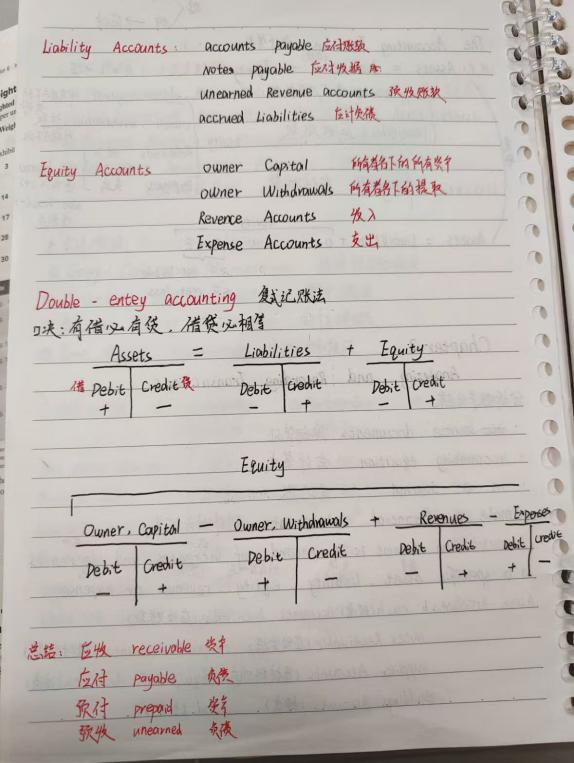 Liability Accounts: accounts payable 应付账款
Notes payable 应付收据
unearned Revenue accounts 预收账款
accrued Liabilities 应计负债
Equity Accounts owner Capital 所有者名下的所有资本
owner Withdrawals 所有者名下的提取
Revence Accounts 收入
Expense Accounts 支出
Double-entey accounting 复式记账法
口决:有借必有贷,借贷必相等
Assets = Liabilities + Equity
借 Debit Credit 贷 Debit Credit Debit Credit
+ − − + − +
Equity
Owner, Capital − Owner, Withdrawals + Revenues − Expenses
Debit Credit Debit Credit Debit Credit Debit Credit
− + + − − + + −
总结: 应收 receivable 资产
应付 payable 负债
预付 prepaid 资产
预收 unearned 负债